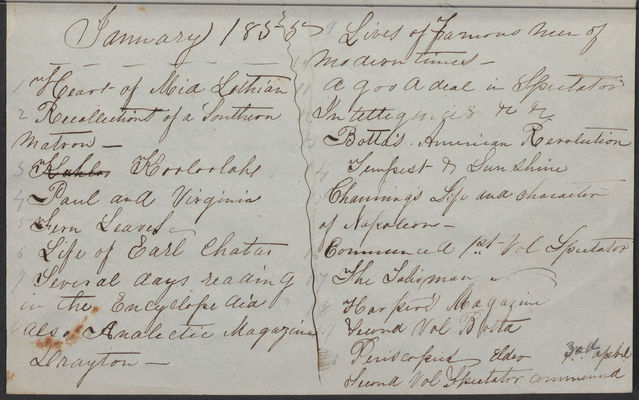 January 1855
1 Heart of Mid Lothian
2 Recollections of a Southern
Matron —
3 Kooloolahs
4 Paul and Virginia
5 Fern Leaves
6 Life of Earl Chatas
7 Several days reading
in the Encyclopedia
8 also Analectic Magazine
Drayton —
9 Lives of Famous men of
Modern times —
A goo A deal in Spectator
Intellegencer & &c
Botta's American Revolution
Tempest & Sunshine
Channings Life and character
of Napoleon —
Commenced 1st Vol Spectator
The Talisman
Harpers Magazine
Second Vol Botta
Periscopics Elder
Second Vol Spectator commenced